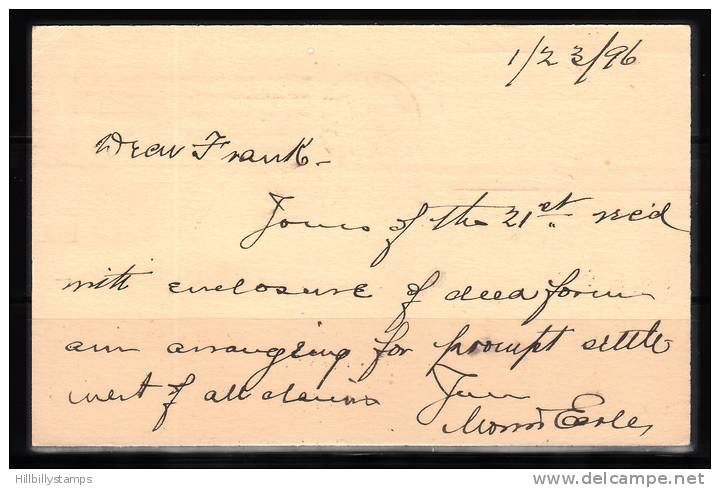 1/23/96
Dear Frank -
Yours of the 21st rec'd
with enclosure of deed form
am arranging for prompt settle
ment of all claims Yours
Morris Earle
Hillbillystamps
delcampe.net